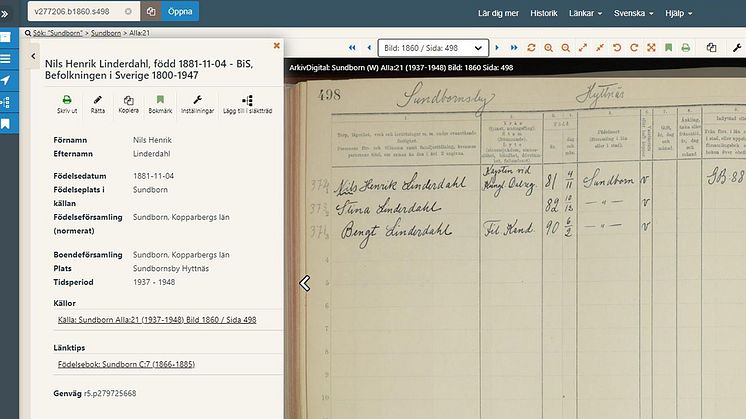 v277206.b1860.s498
Öppna
Lär dig mer Historik Länkar Svenska Hjälp
Sök: "Sundborn" > Sundborn > AIIa:21
Bild: 1860 / Sida: 498
ArkivDigital: Sundborn (W) AIIa:21 (1937-1948) Bild: 1860 Sida: 498
Nils Henrik Linderdahl, född 1881-11-04 - BiS, Befolkningen i Sverige 1800-1947
Skriv ut Rätta Kopiera Bokmärk Inställningar Lägg till i släktträd
Förnamn Nils Henrik
Efternamn Linderdahl
Födelsedatum 1881-11-04
Födelseplats i källan Sundborn
Födelseförsamling (normerat) Sundborn, Kopparbergs län
Boendeförsamling Sundborn, Kopparbergs län
Plats Sundbornsby Hyttnäs
Tidsperiod 1937 - 1948
Källor
Källa: Sundborn AIIa:21 (1937-1948) Bild 1860 / Sida 498
Länktips
Födelsebok: Sundborn C:7 (1866-1885)
Genväg r5.p279725668
498 Sundbornsby Hyttnäs
Nils Henrik Linderdahl 81 4/11 Sundborn v GB. 88
Stina Linderdahl 82 10/12 — " — v
Bengt Linderdahl Fil. Kand. 90 6/2 — " — v
4
5
6
7
8
9
10